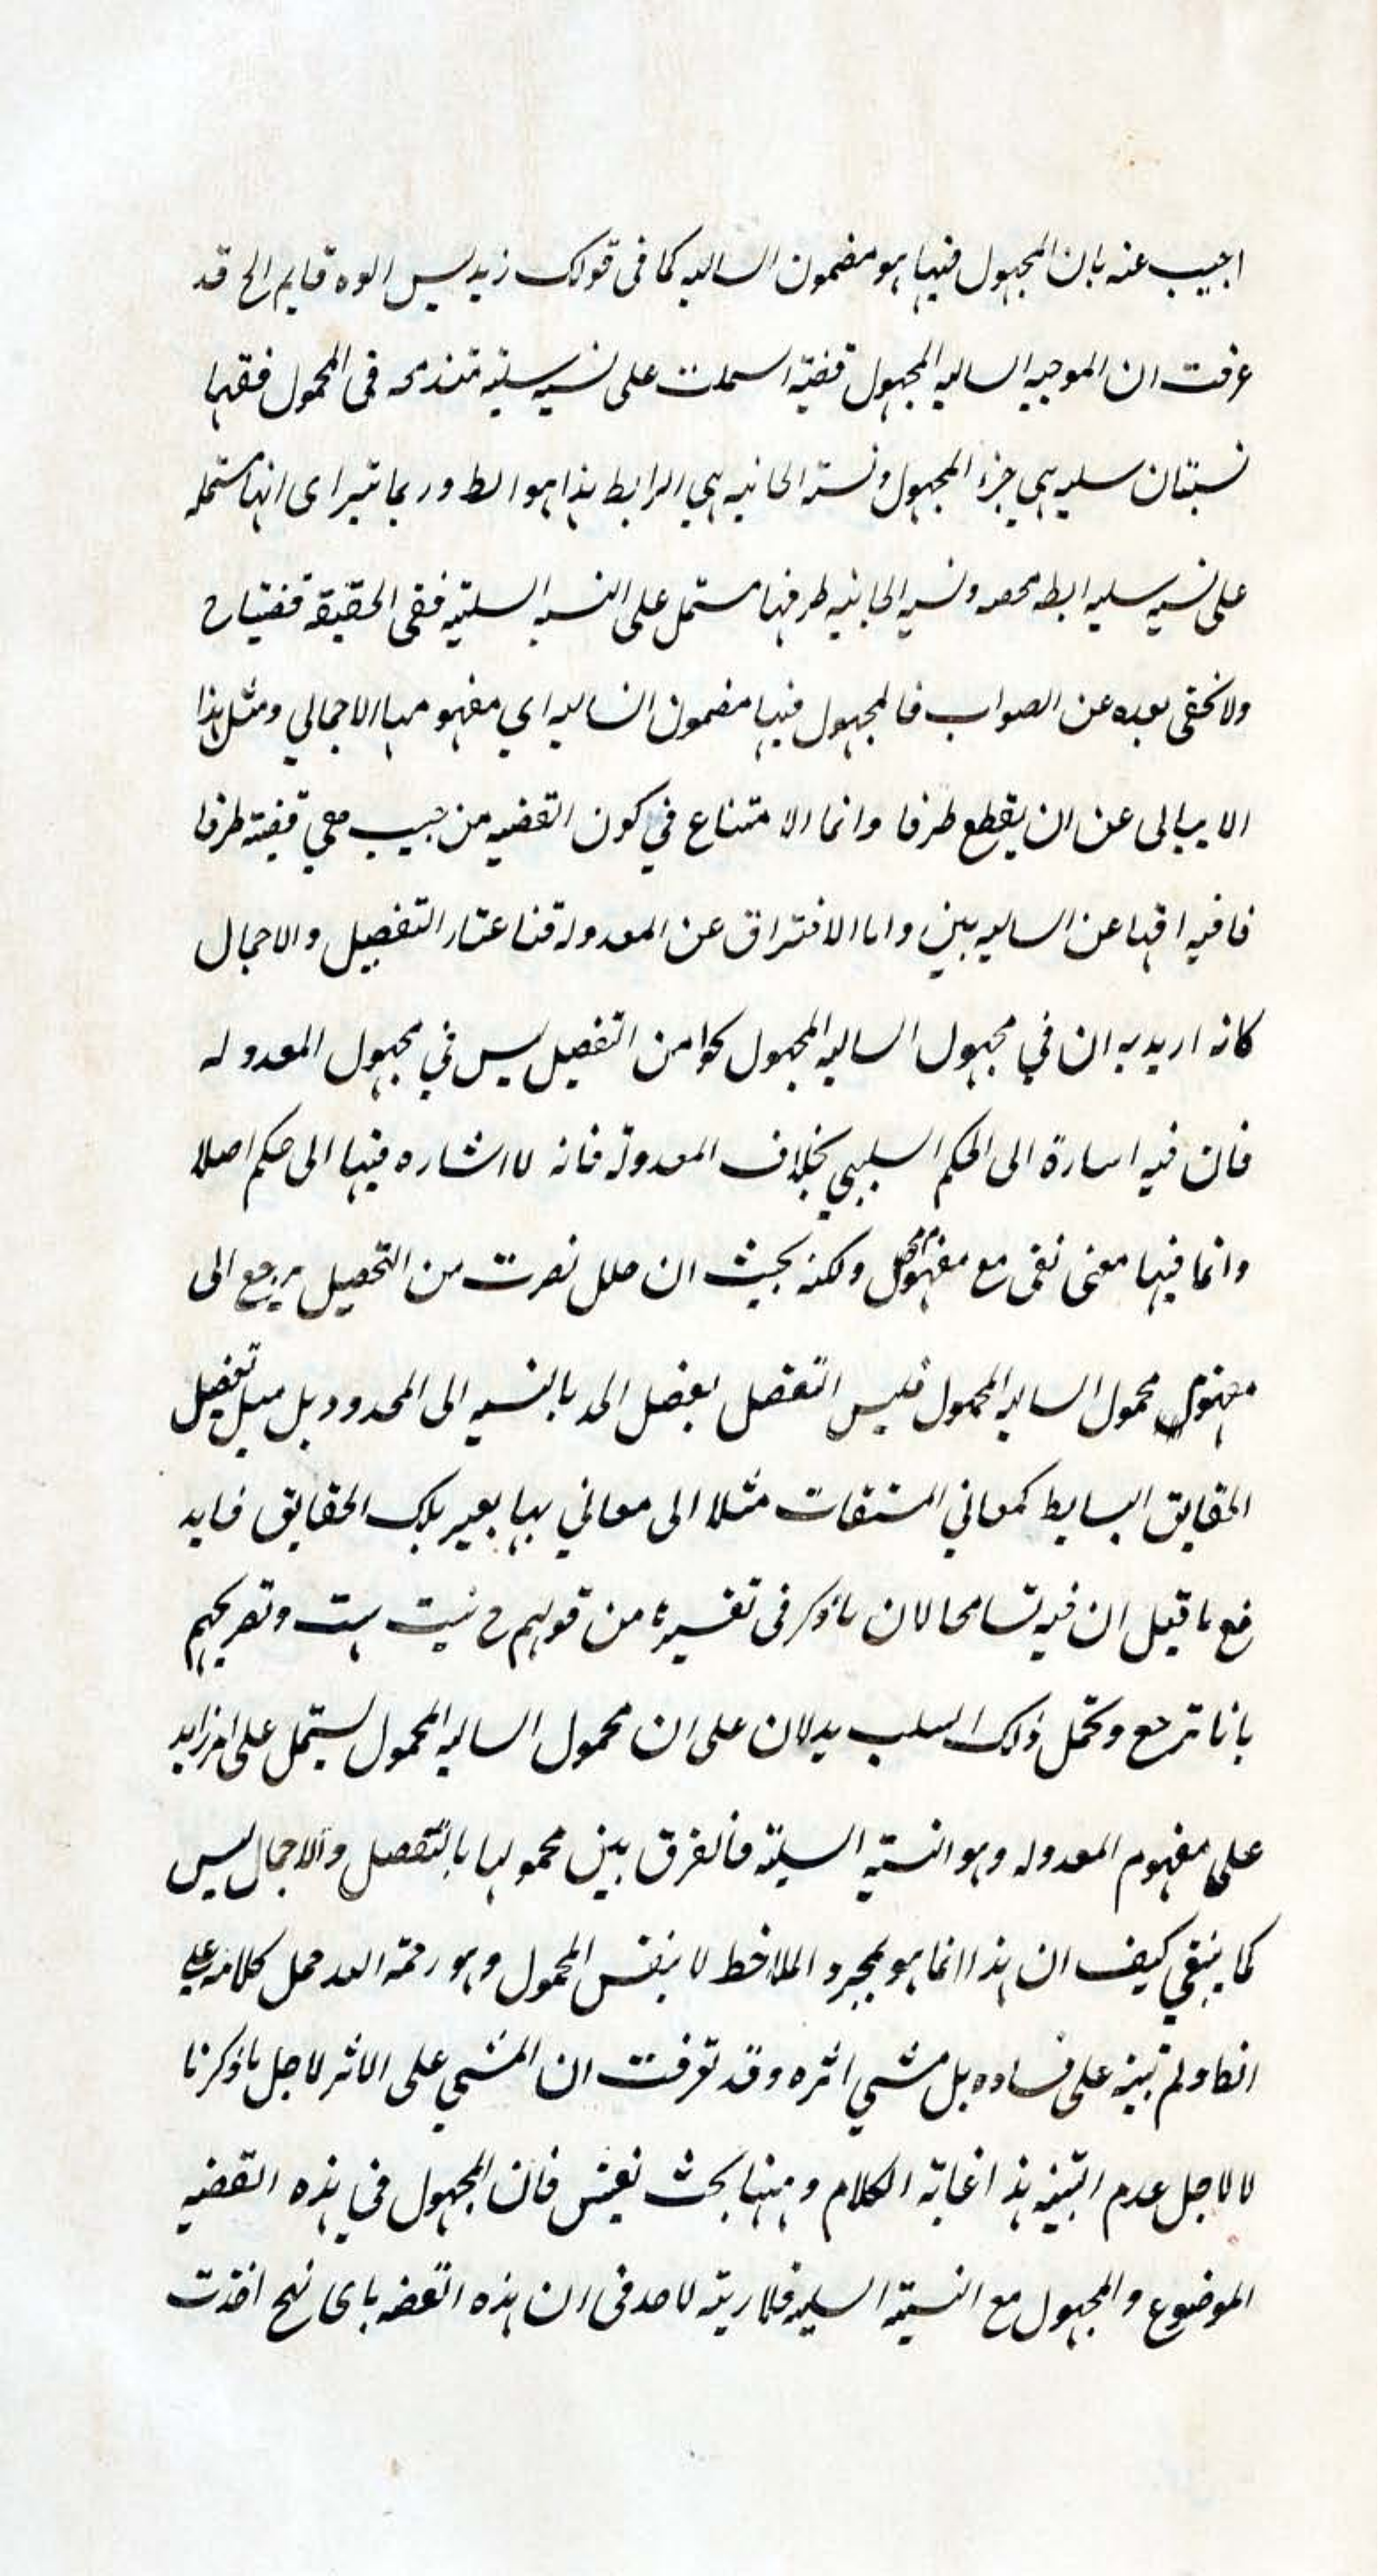 اجيب عنه بان المجهول فيها هو مضمون السالبه كما فى قولك زيد ليس ابوه قايم الخ قد
عرفت ان الموجبه السالبه المجهول قضية اسملت على نسبه سلبيه مندمجه فى المحمول ففيها
نسبتان سلبيه هي جزء المجهول ونسبة ايجابيه هي الرابط هذا هو الظ وربما يتيراى انها مشتمله
على نسبه سلبيه رابطه محصه ونسبه ايجابيه طرفها مشتمل على النسبه السلبيه ففى الحقيقة قضيتان
ولا يخفى بعده عن الصواب فالمجهول فيها مضمون السالبه اي مفهومها الاجمالي ومثل هذا
لا يبالى عن ان يقطع طرفا وانما الامتناع في كون القضيه من حيث هي قضية طرفا
فافتراقها عن السالبه بين واما الافتراق عن المعدولة فباعتبار التفصيل والاجمال
كانه اريد به ان في مجهول السالبه المجهول نحوا من التفصيل ليس في مجهول المعدوله
فان فيه اسارة الى الحكم السلبي بخلاف المعدولة فانه لا اشاره فيها الى حكم اصلا
وانما فيها معنى نفى مع مفهوم محصل ولكنه بحيث ان حلل نصرت من التحصيل يرجع الى
مفهوم محمول السالبه المحمول فليس التفصل بفضل الحد بالنسبه الى المحدود بل مثل تفصيل
الحقايق البسايط كمعاني المشتقات مثلا الى معاني بها يعبر تلك الحقايق فايد
فع ما قيل ان فيه تسامحا لان ما ذكر فى تفسيره من قولهم ج نيست هست وتصريحهم
بانا نرجع ونحمل ذلك السلب يدلان على ان محمول السالبه المحمول يشتمل على امر زايد
على مفهوم المعدوله وهو النسبة السلبية فالفرق بين محموليها بالتفصل والاجمال ليس
كما ينبغي كيف ان هذا انما هو بمجرد الملاحظ لا بنفس المحمول وهو رحمة الله حمل كلامه على
الظ ولم ينبه على فساده بل مشي اثره وقد تعرفت ان المشي على الاثر لاجل ما ذكرنا
لا لاجل عدم التنبه هذا غاية الكلام وههنا بحث نفيس فان المجهول في هذه القضيه
الموضوع والمجهول مع النسبة السلبيه فلا ريبة لاحد فى ان هذه القضه باى نهج اخذت